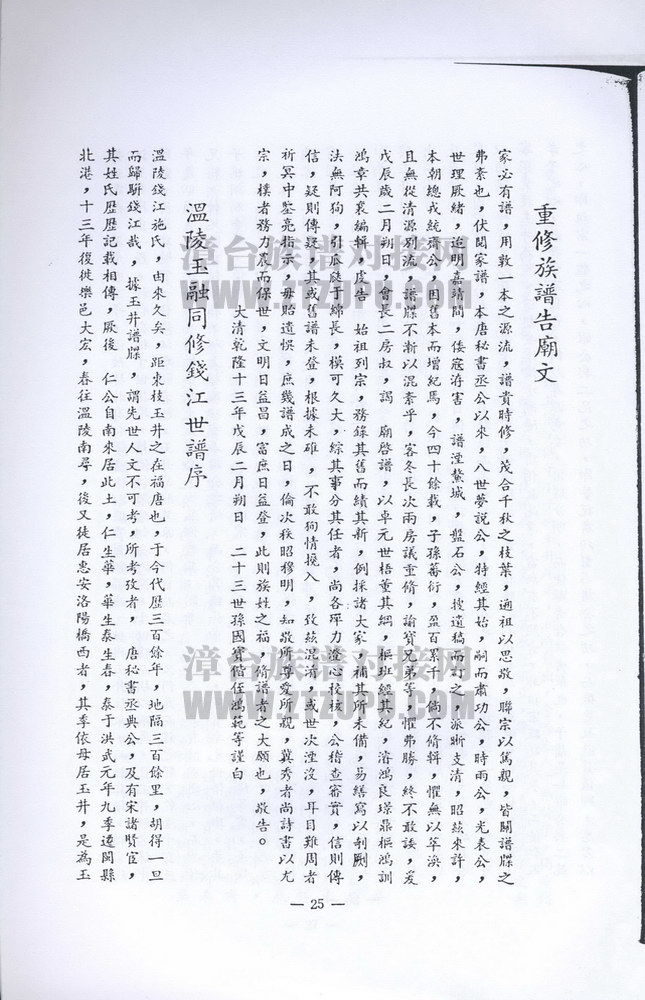 重修族譜告廟文
家必有譜，用敦一本之源流，譜貴時修，茂合千秋之枝葉，遡祖以思敬，聯宗以篤親，皆關譜牒之
弗紊也，伏閱家譜，本唐秘書丞公以來，八世夢說公，特經其始，嗣而肅功公，時雨公，光表公，
世理厥緒，迨明嘉靖間，倭寇洊害，譜湮鰲城，盤石公，搜遺稿而訂之，派晰支清，昭茲來許，
本朝總戎統齋公，因舊本而增紀焉，今四十餘載，子孫蕃衍，盈百累千，倘不脩輯，懼無以萃渙，
且無從清源別流，譜牒不漸以混紊乎，客冬長次兩房議重脩，諭寶兄弟等，懼弗勝，終不敢諉，爰
戊辰歲二月朔日，會長二房叔，謁　廟啓譜，以卓元世梧董其綱，樞班經其紀，濬鴻良璟鼎樞鴻訓
鴻章共襄編輯，虔告　始祖列宗，務錄其舊而續其新，例採諸大家，補其所未備，易繕寫以剞劂，
法無阿狗，引瓜瓞于綿長，模可久大，綜其事分其任者，尚各殫力澄心校核，公稽查審實，信則傳
信，疑則傳疑，其或舊譜未登，根據未確，不敢狥情攙入，致茲混淆，或世次湮沒，耳目難周者
祈冥中鑒亮指示，毋貽遺悞，庶幾譜成之日，倫次秩昭穆明，知敬所尊愛所親，冀秀者尚詩書以尤
宗，樸者務力農而保世，文明日益昌，富庶日益登，此則族姓之福，脩譜者之大願也，敬告。
大清乾隆十三年戊辰二月朔日　二十三世孫國寶偕侄鴻範等謹白
溫陵玉融同修錢江世譜序
溫陵錢江施氏，由來久矣，距東枝玉井之在福唐也，于今代歷三百餘年，地隔三百餘里，胡得一旦
而歸駢錢江哉，據玉井譜牒，謂先世人文不可考，所考攷者，唐秘書丞典公，及有宋諸賢宦，
其姓氏歷歷記載相傳，厥後　仁公自南來居此土，仁生華，華生泰生春，泰于洪武元年九季遷閩縣
北港，十三年復徙樂邑大宏，春往溫陵南尋，後又徒居惠安洛陽橋西者，其季依母居玉井，是為玉
— 25 —
漳台族谱对接网
WWW.ZTZUPU.COM
漳台族谱对接网
WWW.ZTZUPU.COM